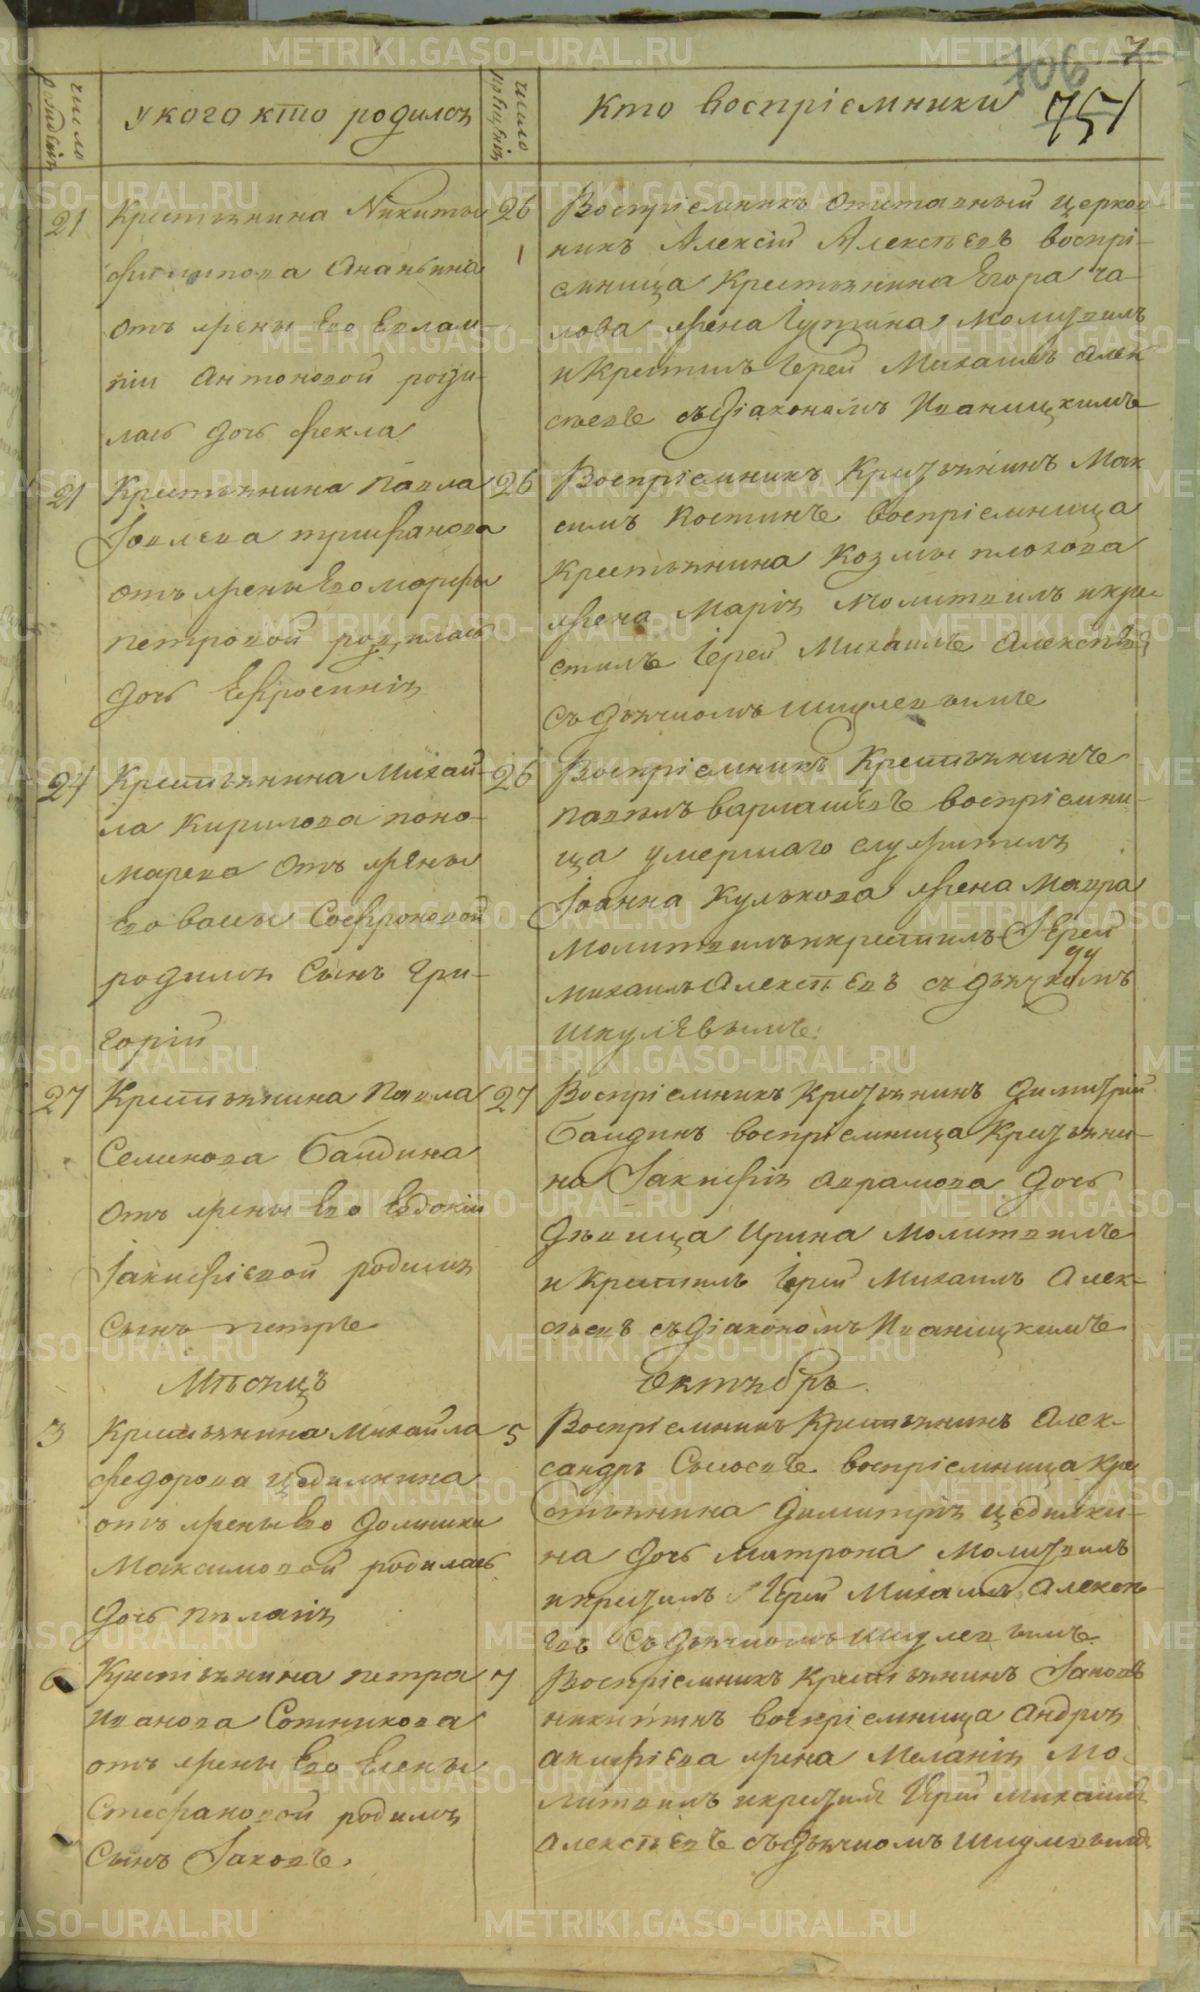 7
706
751
число рождения
у кого кто родился
число крещения
кто восприемники
21
Крестьянина Никиты
Филипова Ананьина
отъ жены Его Евлам-
піи Антоновой роди-
лась дочь Фекла
26
Воспріемникъ отставный церков-
никъ Алексій Алексѣевъ воспрі-
емница Крестьянина Егора Ча-
лова жена молитвилъ
и Крестилъ Іерей Михаилъ Алек
сѣевъ съ діакономъ Иваницкимъ
21
Крестьянина Павла
Іовлева Трифанова
отъ жены Его Марфы
Петровой родилась
дочь Евфросинія
26
Воспріемникъ Крестьянинъ Мак
симъ Костинъ воспріемница
Крестьянина Козмы Плохова
жена Марія Молитвилъ и кре
стилъ Іерей Михаилъ Алексѣевъ
съ дьячкомъ Шишлевымъ
24
Крестьянина Михай-
ла Кирилова Поно-
марева отъ жены
Его Васы Софроновой
родился Сынъ Гри-
горій
26
Воспріемникъ Крестьянинъ
Павелъ Варлашевъ воспріемни-
ца умершаго служителя
Іоанна Кулькова жена Мавра
Молитвилъ и крестилъ Іерей
Михаилъ Алексѣевъ съ дьячкомъ
27
Крестьянина Павла
Семенова Баидина
отъ жены Его Евдокіи
Іакинфіевой родился
Сынъ Петръ
27
Воспріемникъ Крестьянинъ Димитрій
Баидинъ воспріемница Крестьяни-
на Іакинфія Аврамова дочь
дѣвица Ирина Молитвилъ
и Крестилъ Іерей Михаилъ Алек-
сѣевъ съ діакономъ Иваницкимъ
Мѣсяцъ Октябрь
3
Крестьянина Михайла
Федорова Цедилкина
отъ жены Его Домники
Максимовой родилась
дочь Пелагія
5
Воспріемникъ Крестьянинъ Алек-
сандръ Сысоевъ воспріемница Кре
стьянина Димитрія Цедилки-
на дочь Матрона Молитвилъ
и крестилъ Іерей Михаилъ Алексѣ-
евъ съ дьячкомъ Шишлевымъ
6
Крестьянина Петра
Иванова Сотникова
отъ жены Его Елены
Стефановой родился
Сынъ Іаковъ.
7
Воспріемникъ Крестьянинъ Іаковъ
Никитинъ воспріемница Андрея
Акифіева жена Меланія Мо-
литвилъ и крестилъ Іерей Михаилъ
Алексѣевъ съ дьячкомъ Шишлевымъ
METRIKI.GASO-URAL.RU